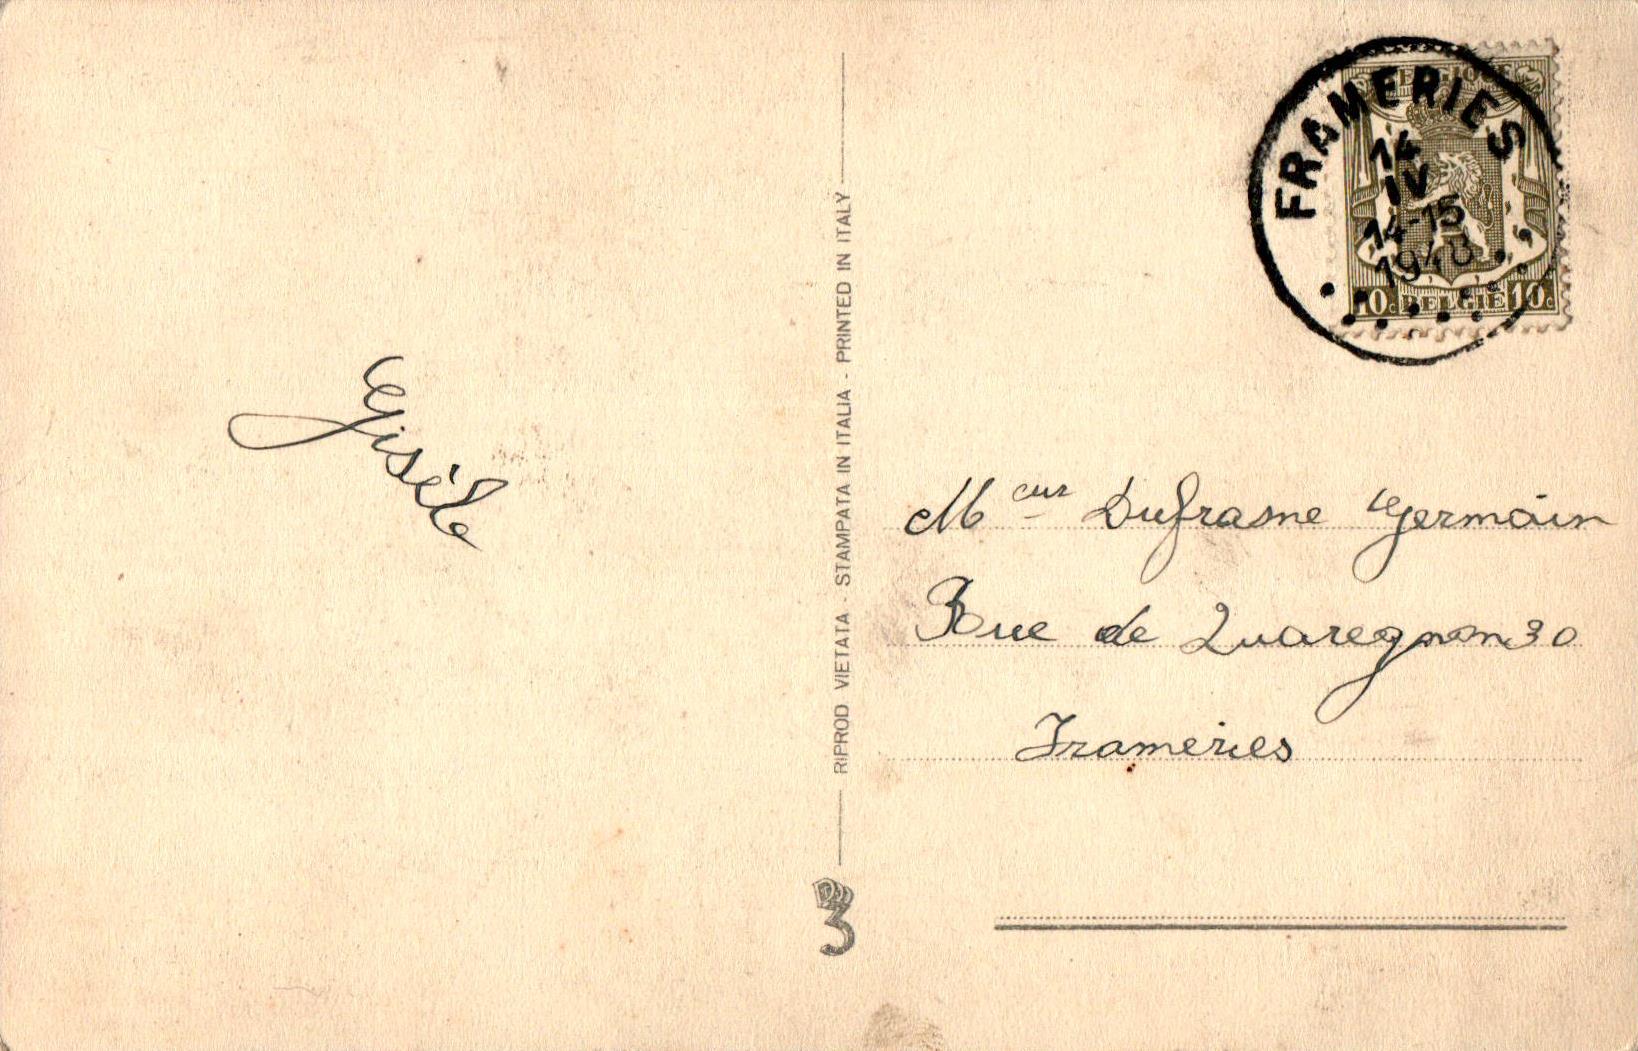 Gisèle
RIPROD VIETATA - STAMPATA IN ITALIA - PRINTED IN ITALY
3
FRAMERIES
14
IV
14-15
1948
BELGIQUE
10c BELGIE 10c
Meur Dufrasne Germain
Rue de Quaregnon 30
Frameries